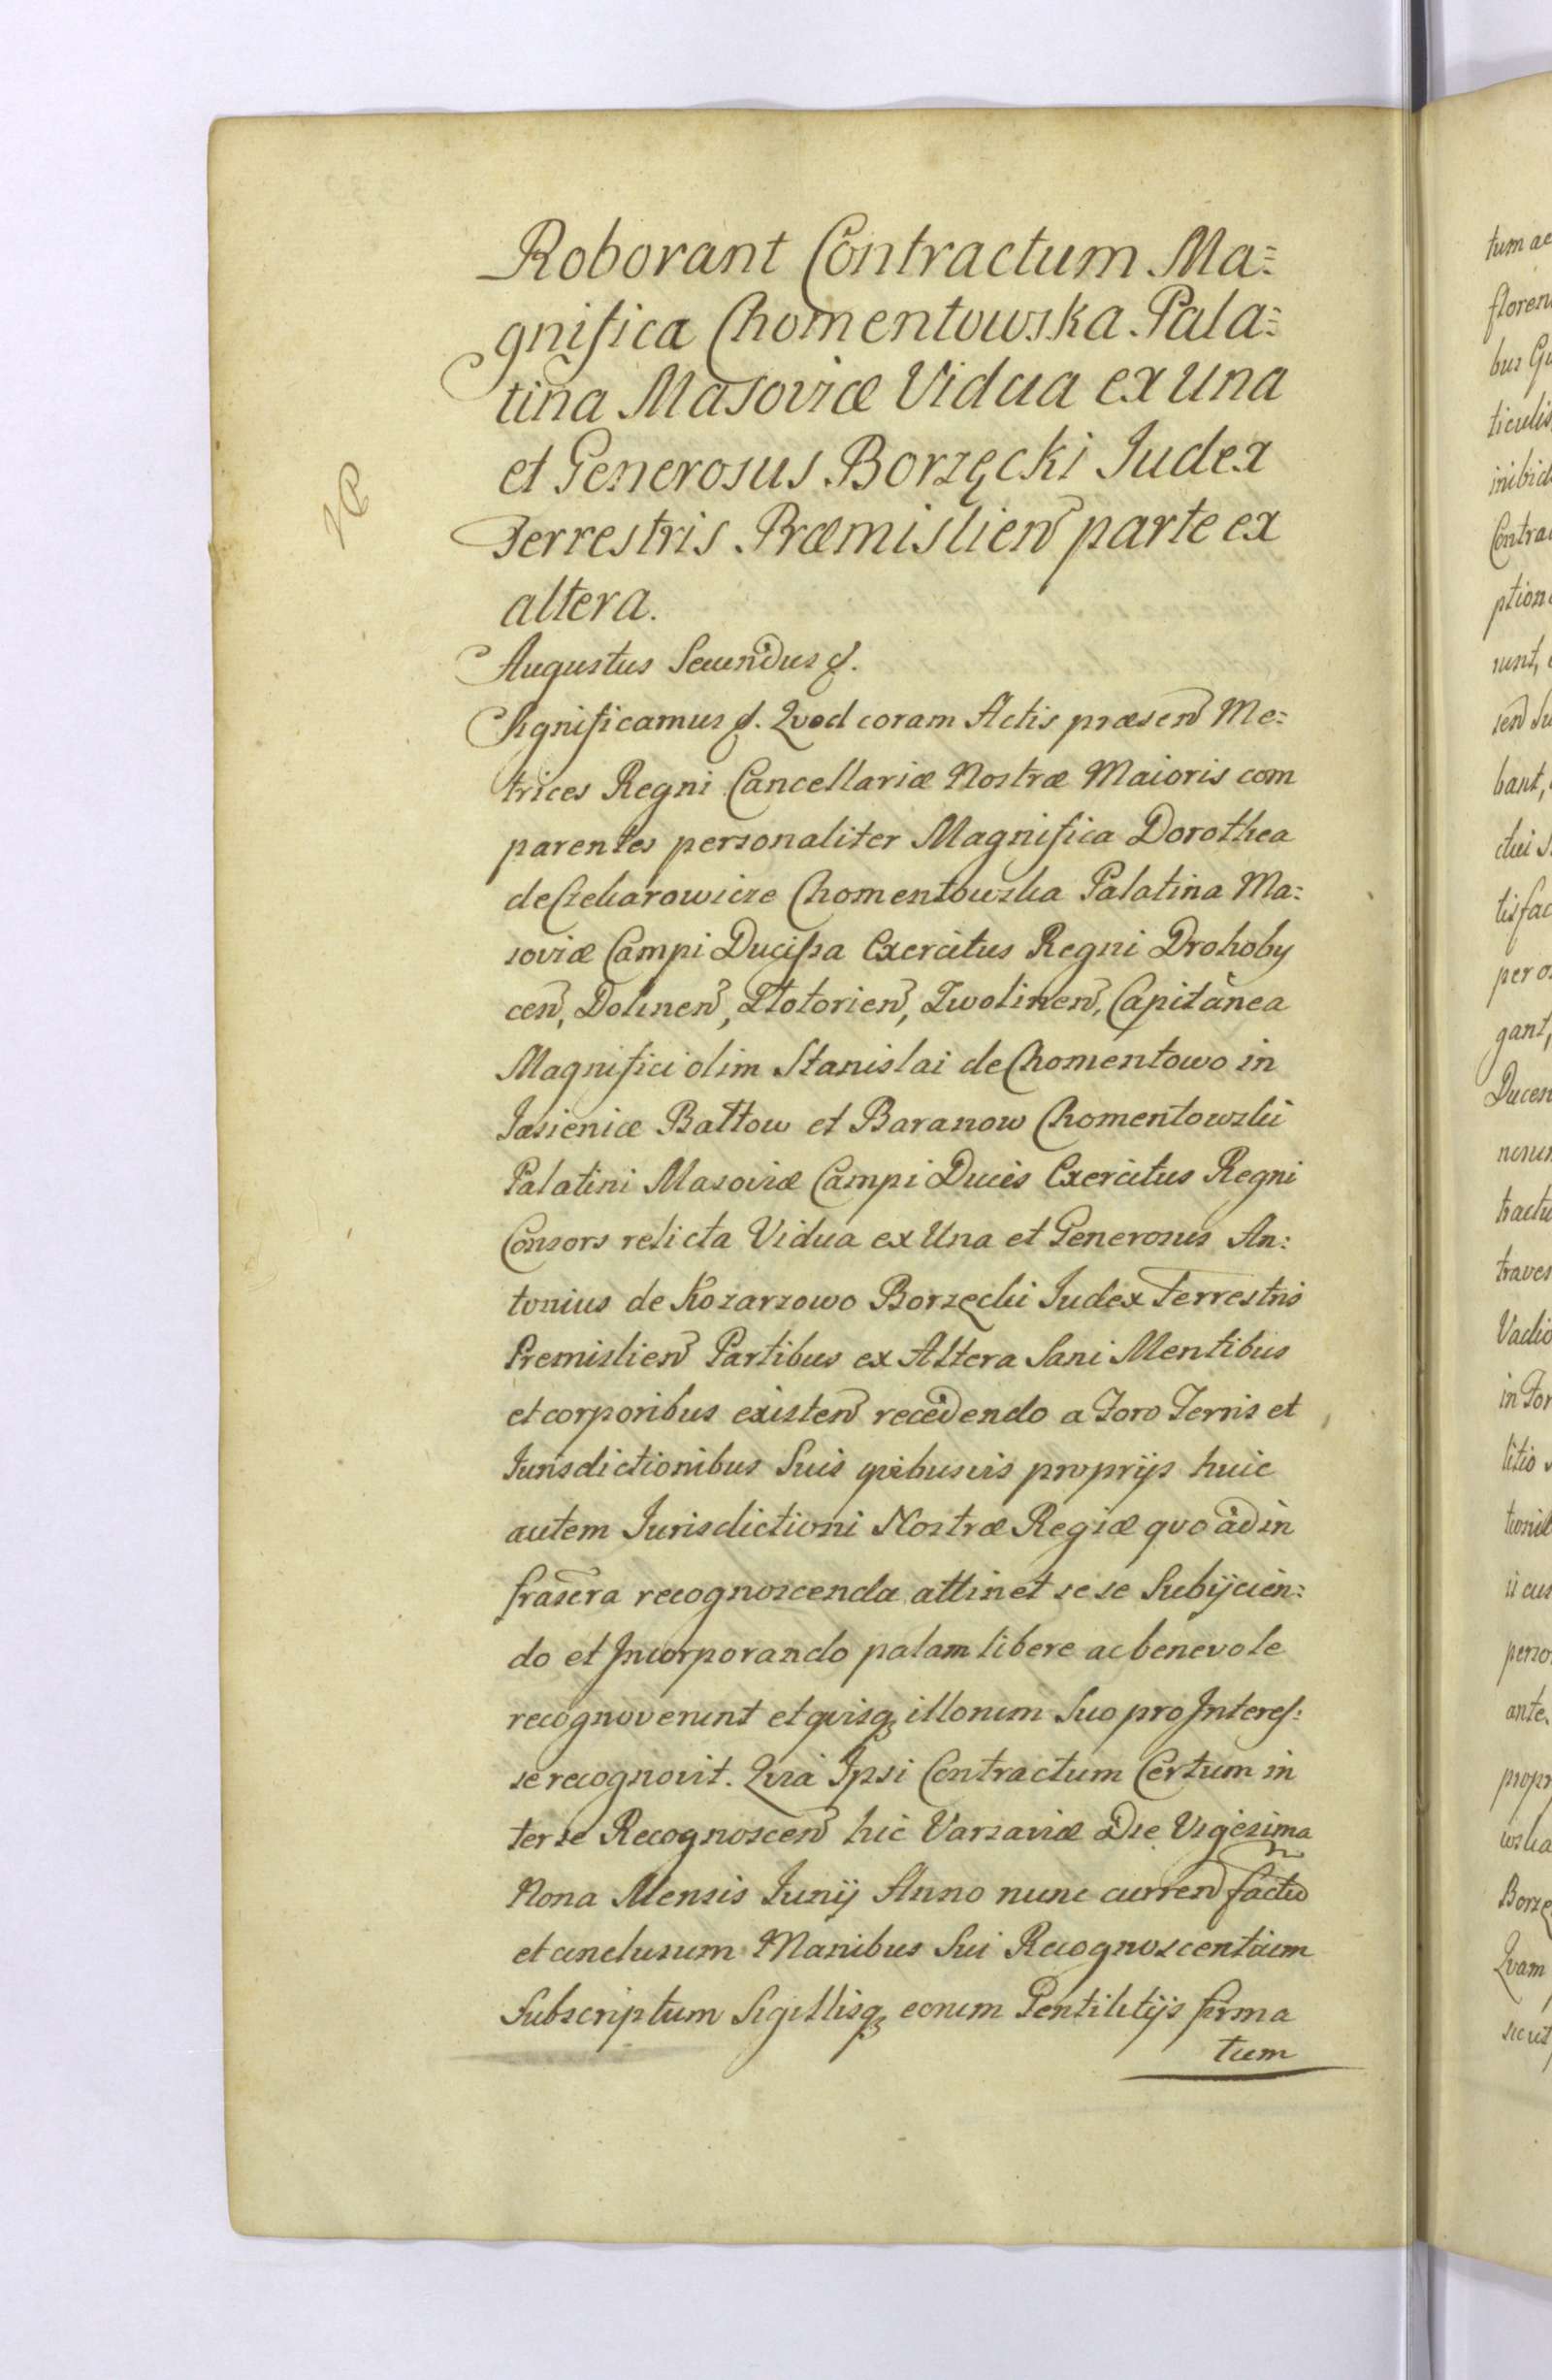 Roborant Contractum Ma=
gnifica Chomentowska Pala=
tina Masoviæ Vidua ex una
et Generosus Borzęcki Iudex
Terrestris Præmislien parte ex
altera.
Augustus Secundus &.
Significamus &. Quod coram Actis præsen Me=
trices Regni Cancellariæ Nostræ Maioris com
parentes personaliter Magnifica Dorothea
de Chomentowska Palatina Ma=
soviæ Campi Ducissa Exercitus Regni Drohoby
cen, Dolinen, Capitanea
Magnifici olim Stanislai de Chomentowo in
Jasienice Baltow et Baranow Chomentowski
Palatini Masoviæ Campi Ducis Exercitus Regni
Consors relicta Vidua ex Una et Generosus An=
tonius de Kozarzowo Borzęcki Iudex Terrestris
Premislien Partibus ex Altera Sani Mentibus
et corporibus existen recedendo a Foro Terris et
Jurisdictionibus Suis quibusvis proprijs huic
autem Jurisdictioni Nostræ Regiæ quo ad in
frascra recognoscenda attinet sese Subijcien=
do et Incorporando palam libere ac benevole
recognoverunt et quisq illorum Suo pro Interes=
se recognovit. Quia Ipsi Contractum Certum in
ter se Recognoscen hic Varsaviæ Die Vigesima
Nona Mensis Iunij Anno nunc curren factu
et conclusum Manibus Sui Recognoscentium
Subscriptum Sigillisq eorum Gentilitijs firma
tum
tum ac
floren
bus
ticulis
inibid
Contrac
ption
runt,
sen Su
bant,
ctui
tisfac
per
gant,
Ducen
tractu
Vadio
in For
litio
perso
ante
propr
Borzę
Quam
sicut